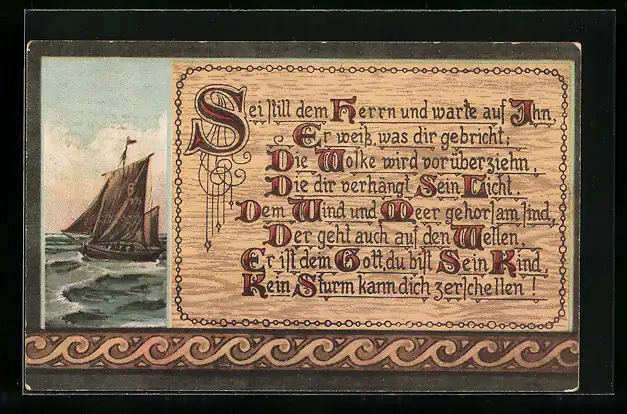 Sei still dem Herrn und warte auf Ihn,
Er weiß, was dir gebricht;
Die Wolke wird vorüberziehn,
Die dir verhängt Sein Licht.
Dem Wind und Meer gehorsam sind,
Der geht auch auf den Wellen,
Er ist dem Gott, du bist Sein Kind,
Kein Sturm kann dich zerschellen!